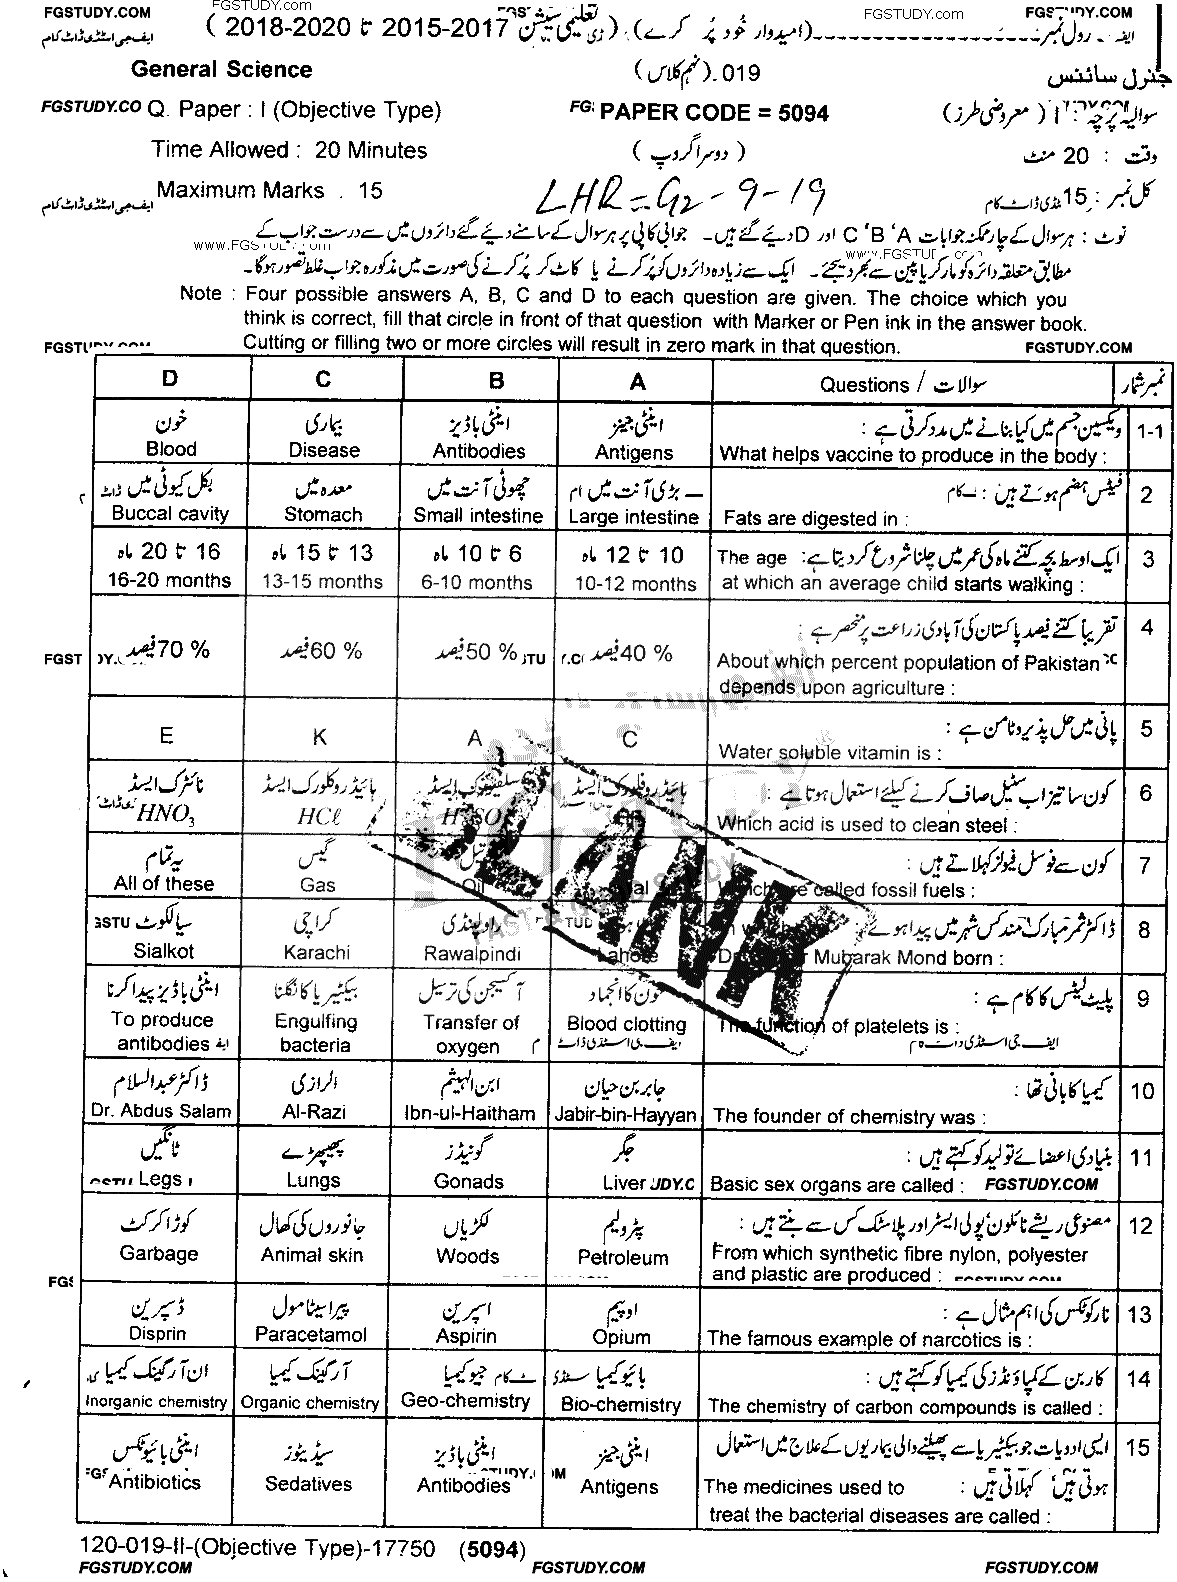 FGSTUDY.COM FGSTUDY.COM FGSTUDY.COM FGSTUDY.COM
ایف جی اسٹڈی ڈاٹ کام (2018-2020 تا 2015-2017 تعلیمی سیشن) (امیدوار خود پُر کرے) رول نمبر
General Science 019 (نہم کلاس) جنرل سائنس
FGSTUDY.CO Q. Paper : I (Objective Type) PAPER CODE = 5094 سوالیہ پرچہ : I (معروضی طرز)
Time Allowed : 20 Minutes (دوسرا گروپ) وقت : 20 منٹ
Maximum Marks . 15 LHR=G2-9-19 کل نمبر : 15
نوٹ : ہر سوال کے چار ممکنہ جوابات A، B، C اور D دیئے گئے ہیں۔ جوابی کاپی پر ہر سوال کے سامنے دیئے گئے دائروں میں سے درست جواب کے
www.FGSTUDY.com www.FGSTUDY.com
مطابق متعلقہ دائرہ کو مارکر یا پین سے بھر دیجئے۔ ایک سے زیادہ دائروں کو پُر کرنے یا کاٹ کر پُر کرنے کی صورت میں مذکورہ جواب غلط تصور ہوگا۔
Note : Four possible answers A, B, C and D to each question are given. The choice which you
think is correct, fill that circle in front of that question with Marker or Pen ink in the answer book.
Cutting or filling two or more circles will result in zero mark in that question. FGSTUDY.COM
D C B A Questions / سوالات نمبر شمار
خون بیماری اینٹی باڈیز اینٹی جینز ویکسین جسم میں کیا بنانے میں مدد کرتی ہے : 1-1
Blood Disease Antibodies Antigens What helps vaccine to produce in the body :
بکل کیویٹی میں معدہ میں چھوٹی آنت میں بڑی آنت میں فیٹس ہضم ہوتے ہیں : 2
Buccal cavity Stomach Small intestine Large intestine Fats are digested in :
16 تا 20 ماہ 13 تا 15 ماہ 6 تا 10 ماہ 10 تا 12 ماہ ایک اوسط بچہ کتنے ماہ کی عمر میں چلنا شروع کر دیتا ہے : The age 3
16-20 months 13-15 months 6-10 months 10-12 months at which an average child starts walking :
تقریباً کتنے فیصد پاکستان کی آبادی زراعت پر منحصر ہے : 4
FGST 70 % فیصد 60 % فیصد 50 % فیصد 40 % فیصد About which percent population of Pakistan
depends upon agriculture :
E K A C پانی میں حل پذیر وٹامن ہے : 5
Water soluble vitamin is :
نائٹرک ایسڈ ہائیڈروکلورک ایسڈ سلفیورک ایسڈ ہائیڈروفلورک ایسڈ کون سا تیزاب سٹیل صاف کرنے کیلئے استعمال ہوتا ہے : 6
HNO3 HCℓ Which acid is used to clean steel :
یہ تمام گیس تیل کون سے فوسل فیولز کہلاتے ہیں : 7
All of these Gas Oil called fossil fuels :
سیالکوٹ کراچی راولپنڈی ڈاکٹر ثمر مبارک مند کس شہر میں پیدا ہوئے 8
Sialkot Karachi Rawalpindi Lahore Mubarak Mond born :
اینٹی باڈیز پیدا کرنا بیکٹیریا کا نگلنا آکسیجن کی ترسیل خون کا انجماد پلیٹ لیٹس کا کام ہے : 9
To produce Engulfing Transfer of Blood clotting The function of platelets is :
antibodies bacteria oxygen ایف جی اسٹڈی ڈاٹ ایف جی اسٹڈی ڈاٹ کام
ڈاکٹر عبدالسلام الرازی ابن الہیثم جابر بن حیان کیمیا کا بانی تھا : 10
Dr. Abdus Salam Al-Razi Ibn-ul-Haitham Jabir-bin-Hayyan The founder of chemistry was :
ٹانگیں پھیپھڑے گونیڈز جگر بنیادی اعضائے تولید کو کہتے ہیں : 11
Legs Lungs Gonads Liver Basic sex organs are called : FGSTUDY.COM
کوڑا کرکٹ جانوروں کی کھال لکڑیاں پٹرولیم مصنوعی ریشے نائلون، پولی ایسٹر اور پلاسٹک کس سے بنتے ہیں : 12
Garbage Animal skin Woods Petroleum From which synthetic fibre nylon, polyester
and plastic are produced : FGSTUDY.COM
ڈسپرین پیراسیٹامول اسپرین اوپیم نارکوٹکس کی اہم مثال ہے : 13
Disprin Paracetamol Aspirin Opium The famous example of narcotics is :
ان آرگینک کیمیا آرگینک کیمیا جیو کیمیا بائیو کیمیا کاربن کے کمپاؤنڈز کی کیمیا کو کہتے ہیں : 14
Inorganic chemistry Organic chemistry Geo-chemistry Bio-chemistry The chemistry of carbon compounds is called :
اینٹی بائیوٹکس سیڈیٹوز اینٹی باڈیز اینٹی جینز ایسی ادویات جو بیکٹیریا سے پھیلنے والی بیماریوں کے علاج میں استعمال 15
Antibiotics Sedatives Antibodies Antigens The medicines used to ہوتی ہیں کہلاتی ہیں :
treat the bacterial diseases are called :
120-019-II-(Objective Type)-17750 (5094)
FGSTUDY.COM FGSTUDY.COM FGSTUDY.COM
BLANK